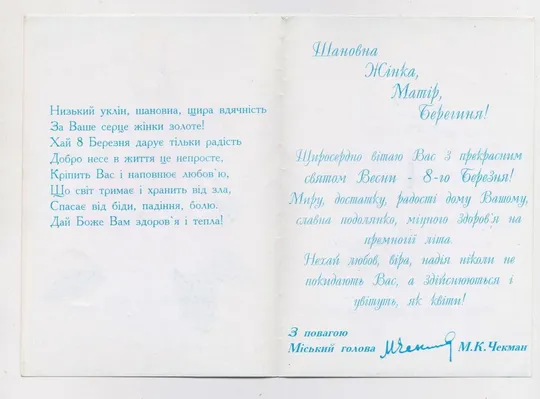 Низький уклін, шановна, щира вдячність
За Ваше серце жінки золоте!
Хай 8 Березня дарує тільки радість
Добро несе в життя це непросте,
Кріпить Вас і наповнює любов`ю,
Що світ тримає і хранить від зла,
Спасає від біди, падіння, болю.
Дай Боже Вам здоров`я і тепла!
Шановна
Жінка,
Матір,
Берегиня!
Щиросердно вітаю Вас з прекрасним
святом Весни - 8-го Березня!
Миру, достатку, радості дому Вашому,
славна подолянко, міцного здоров`я на
премногії літа.
Нехай любов, віра, надія ніколи не
покидають Вас, а здійснюються і
цвітуть, як квіти!
З повагою
Міський голова М.К.Чекман